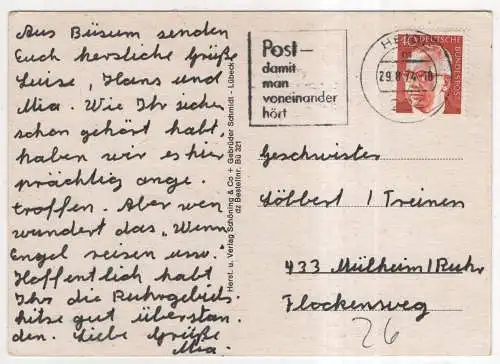 Aus Büsum senden
Euch herzliche Grüße
Luise, Hans und
Mia. Wie Ihr sicher
schon gehört habt,
haben wir es hier
prächtig ange-
troffen. Aber wen
wundert das „Wenn
Engel reisen usw."
Hoffentlich habt
Ihr die Ruhrgebiets-
hitze gut überstan-
den. Liebe Grüße
Mia.
Herst. u. Verlag Schöning & Co + Gebrüder Schmidt - Lübeck
dz Bestellnr. Bü 321
Post-
damit
man
voneinander
hört
29.8.74-18
40
DEUTSCHE
BUNDESPOST
Geschwister
Löbbert / Treinen
433 Mülheim/Ruhr
Flockensweg
26